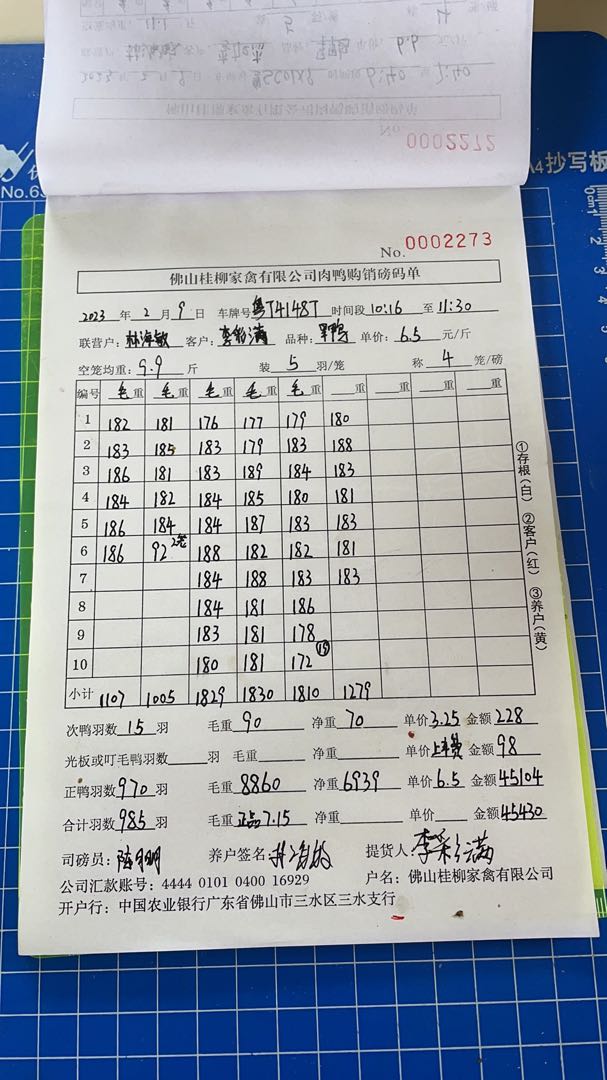 0002272
A4抄写板
No.6
No. 0002273
佛山桂柳家禽有限公司肉鸭购销磅码单
2023 年 2 月 9 日 车牌号 粤T4148T 时间段 10:16 至 11:30
联营户: 林海敏 客户: 李彩满 品种: 黑鸭 单价: 6.5 元/斤
空笼均重: 9.9 斤 装 5 羽/笼 称 4 笼/磅
编号 毛重 毛重 毛重 毛重 毛重 重 重 重 重
1 182 181 176 177 179 180
2 183 185 183 179 183 188
3 186 181 183 189 184 183
4 184 182 184 185 180 181
5 186 184 184 187 183 183
6 186 92 2笼 188 182 182 181
7 184 188 183 183
8 184 181 186
9 183 181 178
10 180 181 172 ⑮
小计 1107 1005 1829 1830 1810 1279
①存根(白) ②客户(红) ③养户(黄)
次鸭羽数 15 羽 毛重 90 净重 70 单价 3.25 金额 228
光板或叮毛鸭羽数 羽 毛重 净重 单价 上车费 金额 98
正鸭羽数 970 羽 毛重 8860 净重 6939 单价 6.5 金额 45104
合计羽数 985 羽 毛重 正品7.15 净重 单价 金额 45430
司磅员: 养户签名: 提货人: 李彩满
公司汇款账号: 4444 0101 0400 16929 户名: 佛山桂柳家禽有限公司
开户行: 中国农业银行广东省佛山市三水区三水支行